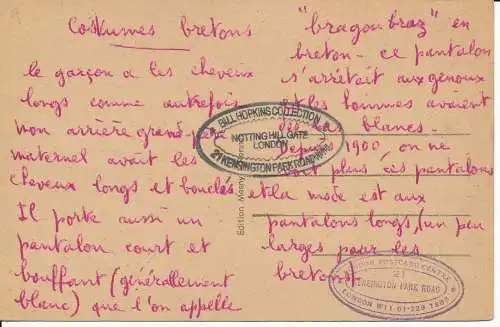 Costumes bretons
le garçon a les cheveux
longs comme autrefois
mon arrière grand-père
maternel avait les
cheveux longs et bouclés
Il porte aussi un
pantalon court et
bouffant (généralement
blanc) que l'on appelle
"bragou braz" en
breton - ce pantalon
s'arrêtait aux genoux
et les hommes avaient
des bas blancs.
Depuis 1900, on ne
plus ces pantalons
et la mode est aux
pantalons longs, un peu
larges pour les
bretons
BILL HOPKINS COLLECTION
NOTTING HILL GATE
LONDON
21 KENSINGTON PARK ROAD
Edition
POSTCARD CENTRE
21
KENSINGTON PARK ROAD
LONDON W11 01-229